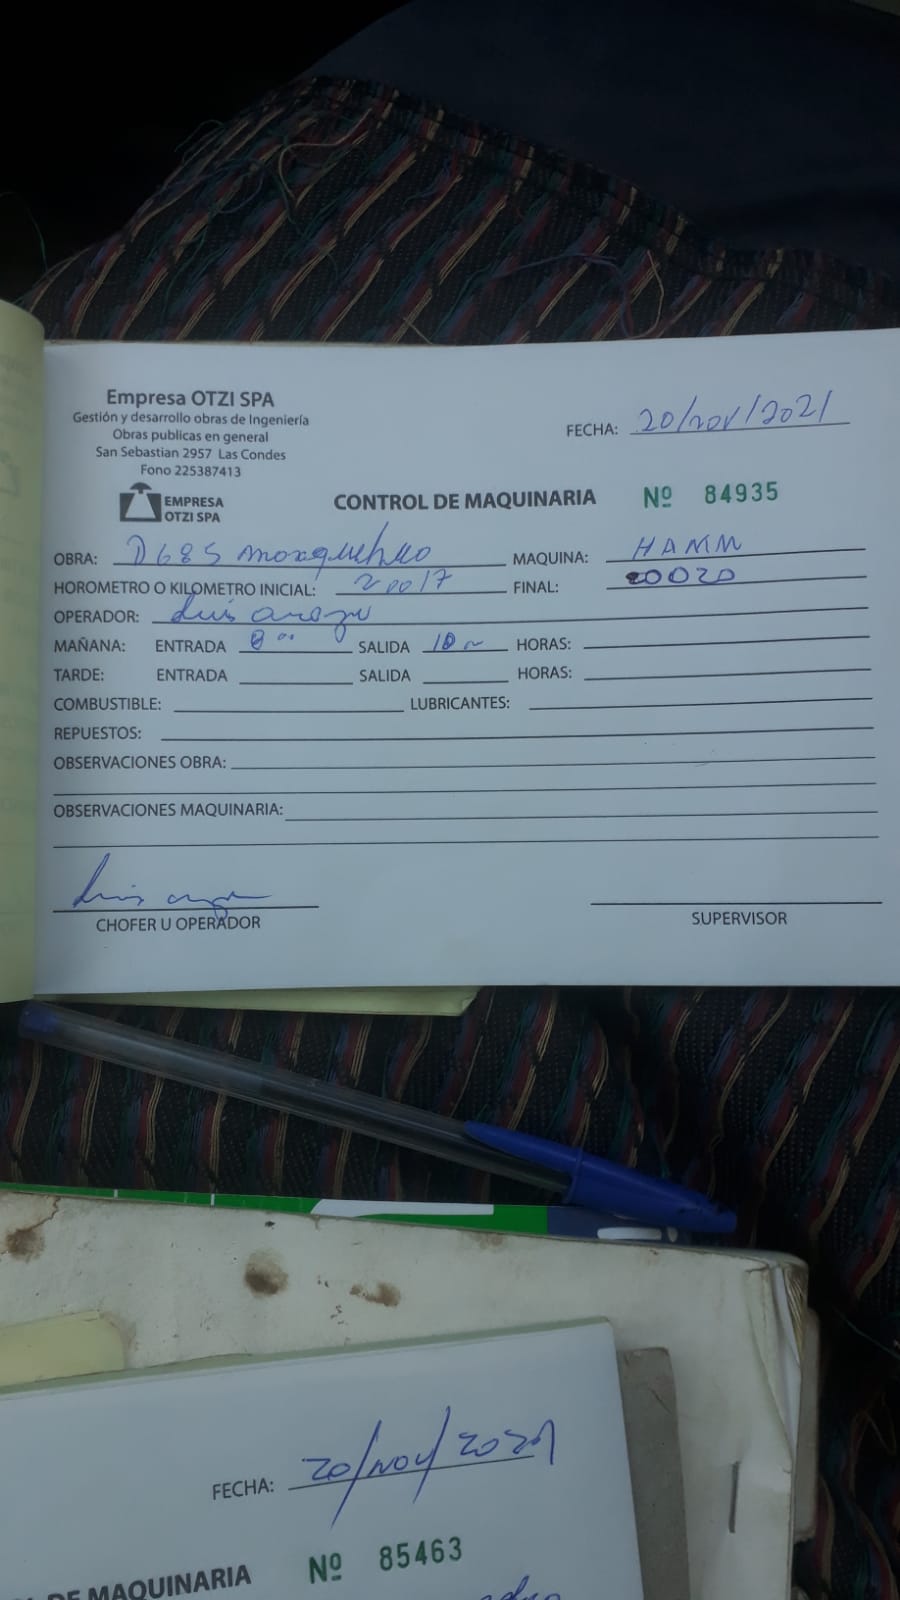 Empresa OTZI SPA
Gestión y desarrollo obras de Ingeniería
Obras publicas en general
San Sebastian 2957 Las Condes
Fono 225387413
EMPRESA
OTZI SPA
FECHA: 20/nov/2021
CONTROL DE MAQUINARIA Nº 84935
OBRA: D685 MAQUINA: HAMM
HOROMETRO O KILOMETRO INICIAL: 20017 FINAL: 20020
OPERADOR: Luis
MAÑANA: ENTRADA 8°° SALIDA 10 HORAS:
TARDE: ENTRADA SALIDA HORAS:
COMBUSTIBLE: LUBRICANTES:
REPUESTOS:
OBSERVACIONES OBRA:
OBSERVACIONES MAQUINARIA:
Luis
CHOFER U OPERADOR SUPERVISOR
FECHA: 20/NOV/2021
DE MAQUINARIA Nº 85463